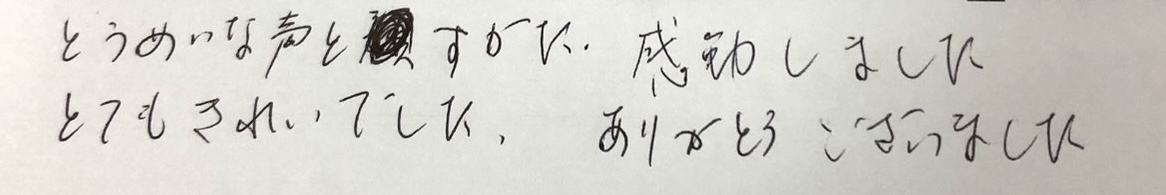 とうめいな声とすがた. 感動しました
とてもきれいでした. ありがとうございました